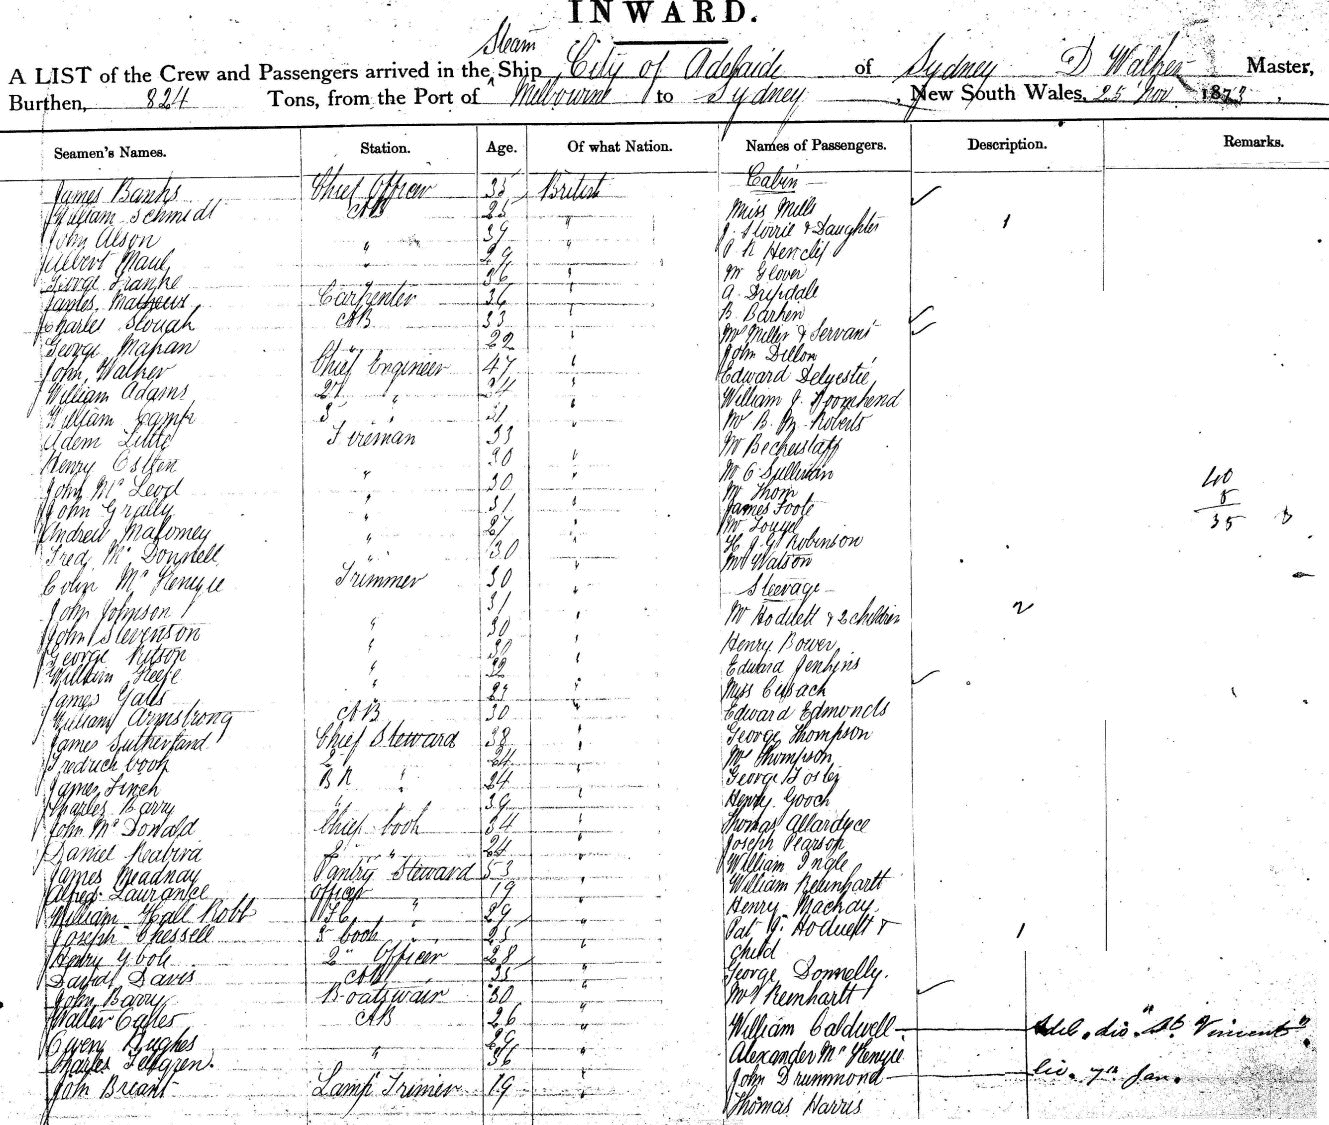 INWARD.
Steam
A LIST of the Crew and Passengers arrived in the Ship City of Adelaide of Sydney D Walker Master,
Burthen, 824 Tons, from the Port of Melbourne to Sydney, New South Wales, 25 Nov 1873.
Seamen's Names. Station. Age. Of what Nation. Names of Passengers. Description. Remarks.
James Banks Chief Officer 35 British Cabin
William Schmidt AB 25 " Miss Mills
John Alson " 39 " J. Storrie & Daughter 1
Albert Maul " 29 "
George Franke 36 " Mr Glover
James Mathews Carpenter 36 " A. Drysdale
Charles Slough AB 33 " B. Barken
George Mahan " 22 " Mr Miller & Servant
John Walker Chief Engineer 47 " John Dillon
William Adams 2d " 34 " Edward
William Camp 3 " 31 " William J.
Adem Little Fireman 33 " Mr B. M. Roberts
Henry 30 " Mr
John Mc Leod " 30 " Mr O Sullivan 40
John Grally " 31 " Mr Thom 5
Andrew Maloney " 27 " James Foote 35
Fred Mc Donnell " 30 " Mr
Colin Mc Kenzie Trimmer 30 " H. J. G. Robinson
Mr Watson
Steerage
John Johnson " 31 " Mr Hoduett & 2 children 2
John Stevenson " 30 " Henry Bower
George Kitson " 30 " Edward Jenkins
William Keefe " 32 " Miss Cusack
James Galls 23 " Edward Edmonds
William Armstrong AB 30 " George Thompson
James Sutherland Chief Steward 38 " Mr Thompson
Fredrick Cook 2 " 24 " George Foster
James Finch B R " 24 " Henry Gooch
Charles Barry " 39 " Thomas Allardyce
John Mc Donald Chief Cook 34 " Joseph Pearson
Daniel 2 " 24 " William Ingle
James Meadnay Pantry Steward 53 " William Reinhartt
Alfred Laurance Officer " 19 " Henry Mackay
William Hall Robb " 29 " Pat Hoduett & 1
Joseph Chessell 3 Cook 25 " child
Henry 2nd Officer 28 " George Donnelly.
David Davis AB 35 " Mr Reinhartt
John Barry Boatswain 30 "
Walter AB 26 " William Caldwell dis. "St. Vincent".
Owen Hughes 29 Alexander Mc Kenzie
Charles Fellgren. " 36 " John Drummond 7th Jan.
John Breant Lamp Trimer 19 " Thomas Harris